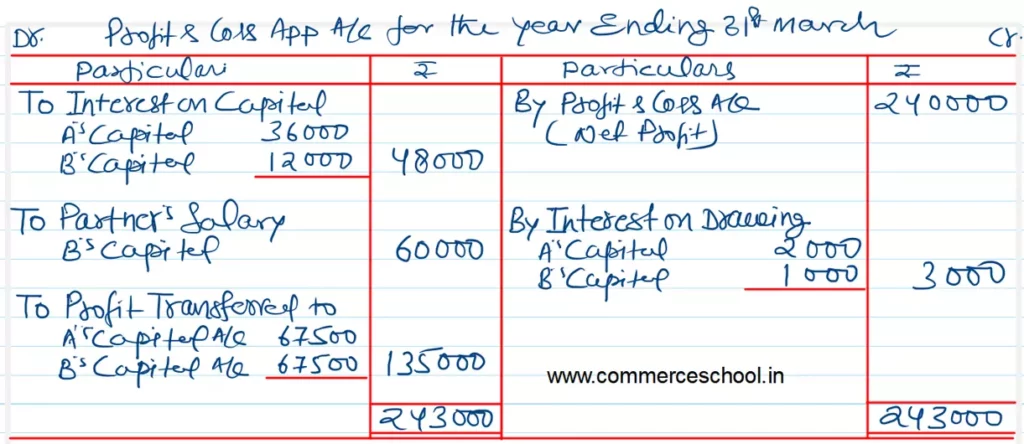 Dr. Profit & Loss App A/c for the year Ending 31st March Cr.
Particulars ₹ Particulars ₹
To Interest on Capital By Profit & Loss A/c 240000
A's Capital 36000 (Net Profit)
B's Capital 12000 48000
To Partner's Salary By Interest on Drawing
B's Capital 60000 A's Capital 2000
B's Capital 1000 3000
To Profit Transferred to
A's Capital A/c 67500
B's Capital A/c 67500 135000
www.commerceschool.in
243000 243000